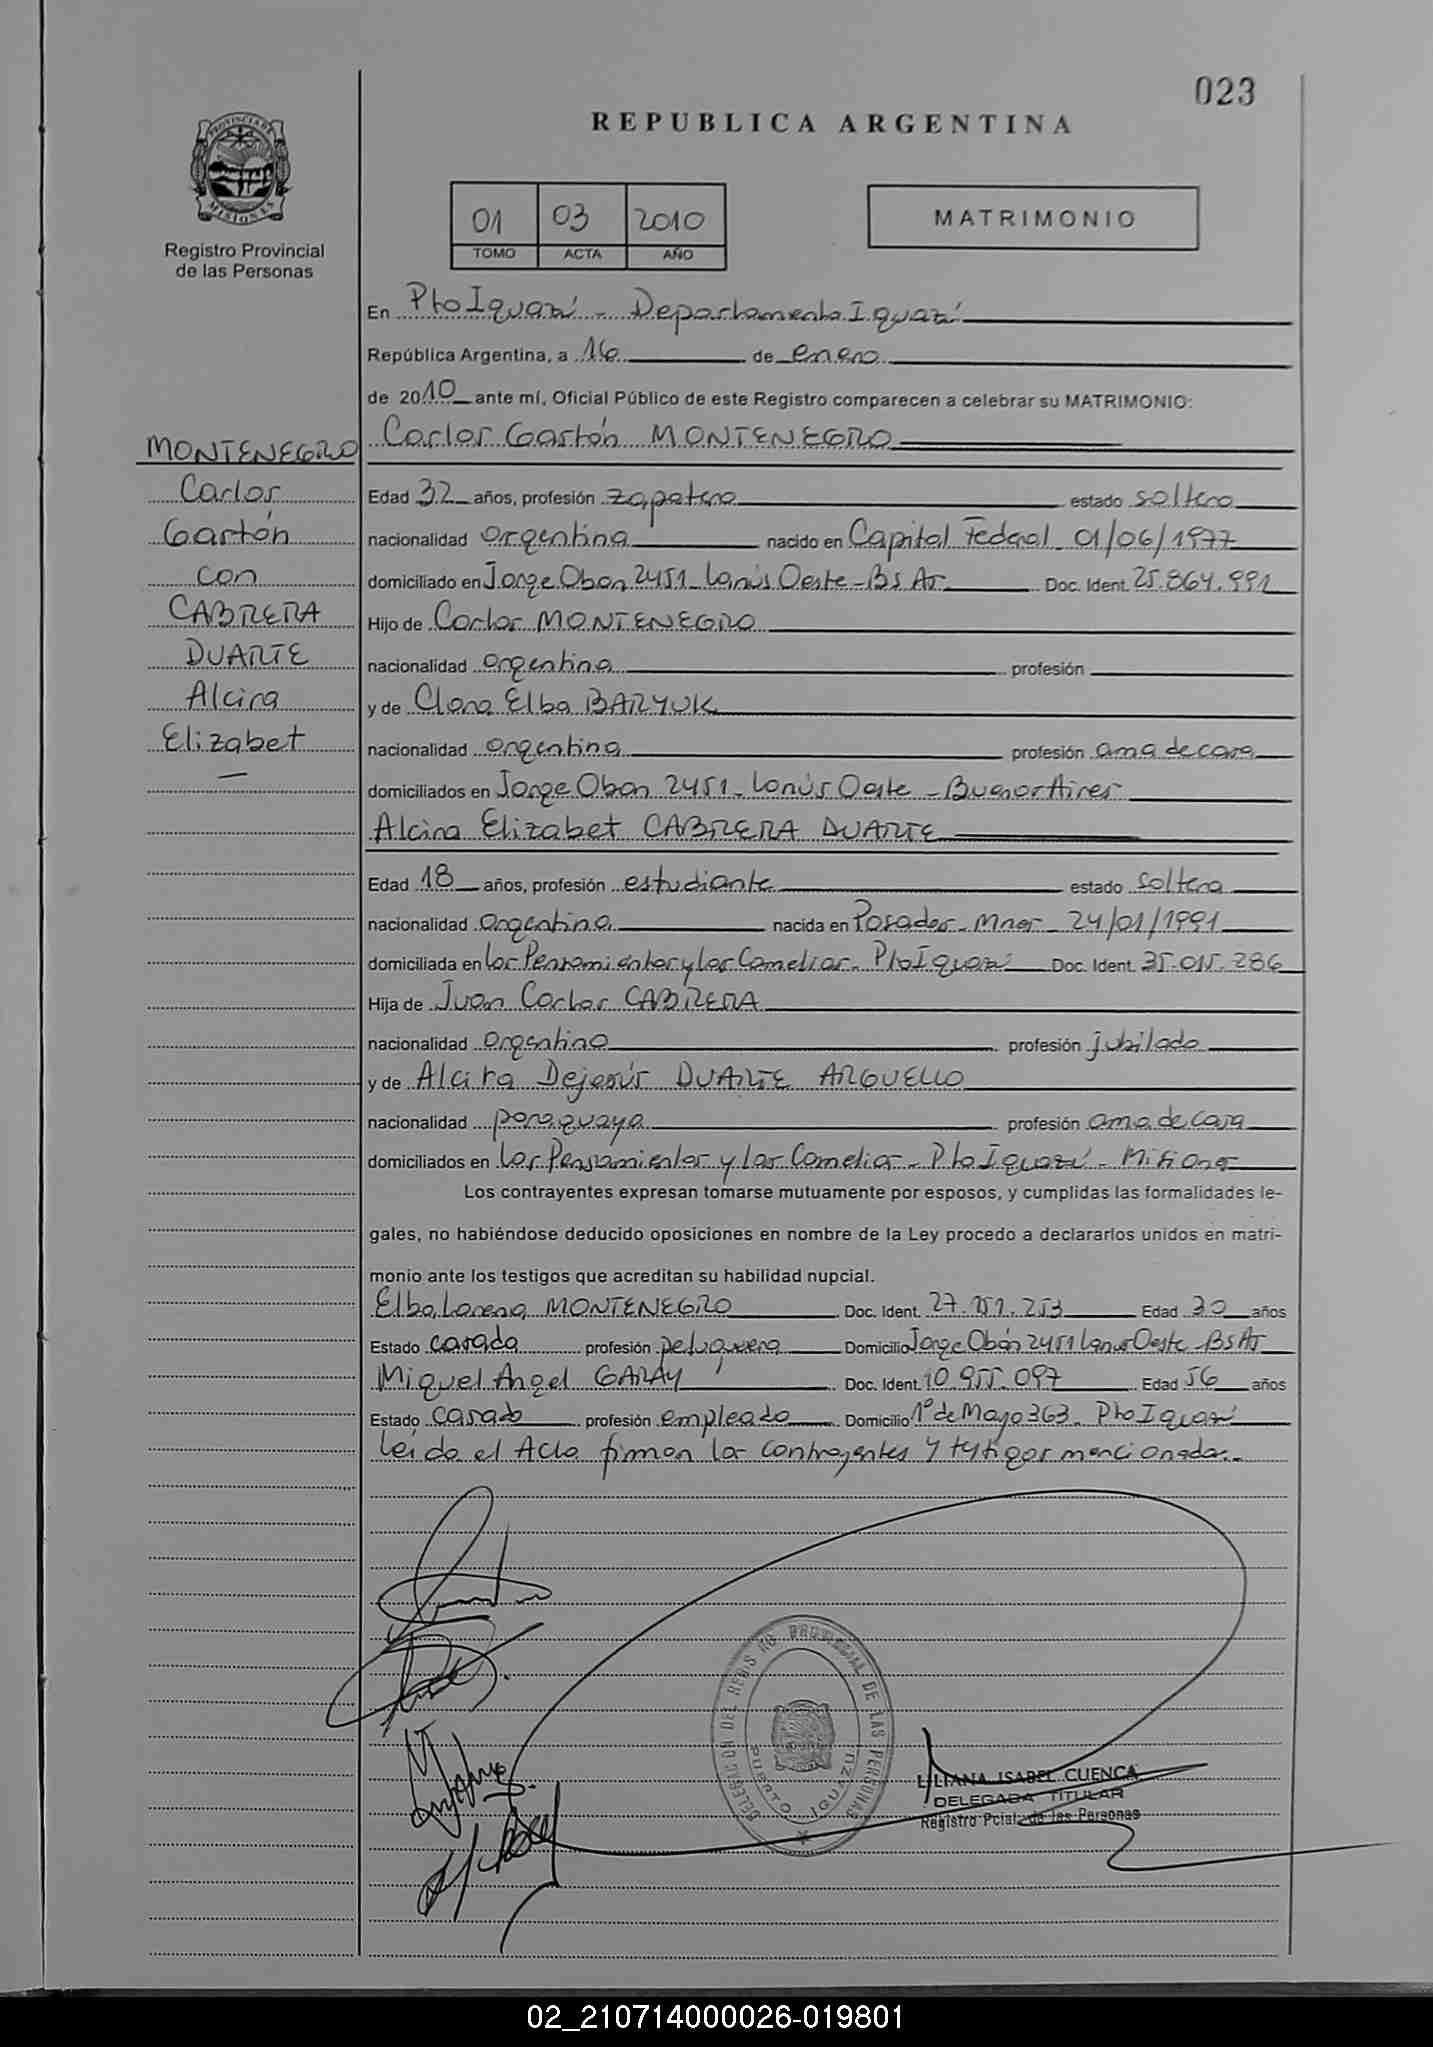 023
REPUBLICA ARGENTINA
PROVINCIA DE
MISIONES
Registro Provincial
de las Personas
01 03 2010
TOMO ACTA AÑO
MATRIMONIO
En Pto Iguazú - Departamento Iguazú
República Argentina, a 16 de enero
de 2010 ante mí, Oficial Público de este Registro comparecen a celebrar su MATRIMONIO:
Carlos Gastón MONTENEGRO
MONTENEGRO
Carlos
Gastón
con
CABRERA
DUARTE
Alcira
Elizabet
Edad 32 años, profesión zapatero estado soltero
nacionalidad argentina nacido en Capital Federal 01/06/1977
domiciliado en Jorge Obon 2451 - Lanús Oeste - Bs As Doc. Ident. 25.864.991
Hijo de Carlos MONTENEGRO
nacionalidad argentina profesión
y de Clara Elba BARYUK
nacionalidad argentina profesión ama de casa
domiciliados en Jorge Obon 2451 - Lanús Oeste - Buenos Aires
Alcira Elizabet CABRERA DUARTE
Edad 18 años, profesión estudiante estado soltera
nacionalidad argentina nacida en Posadas - Mnes - 24/01/1991
domiciliada en los Pensamientos y las Camelias - Pto Iguazú Doc. Ident. 35.015.286
Hija de Juan Carlos CABRERA
nacionalidad argentina profesión jubilado
y de Alcira Dejesús DUARTE ARGUELLO
nacionalidad paraguaya profesión ama de casa
domiciliados en los Pensamientos y las Camelias - Pto Iguazú - Misiones
Los contrayentes expresan tomarse mutuamente por esposos, y cumplidas las formalidades le-
gales, no habiéndose deducido oposiciones en nombre de la Ley procedo a declararlos unidos en matri-
monio ante los testigos que acreditan su habilidad nupcial.
Elba Lorena MONTENEGRO Doc. Ident. 27.151.253 Edad 30 años
Estado casada profesión peluquera Domicilio Jorge Obón 2451 Lanus Oeste - Bs As
Miguel Angel GARAY Doc. Ident. 10.955.097 Edad 56 años
Estado casado profesión empleado Domicilio 1º de Mayo 363 - Pto Iguazú
Leído el Acta firman los contrayentes y testigos mencionados.-
DELEGACION DEL REGISTRO PROVINCIAL DE LAS PERSONAS
PUERTO IGUAZU
LILIANA ISABEL CUENCA
DELEGADA TITULAR
Registro Pcial. de las Personas
02_210714000026-019801